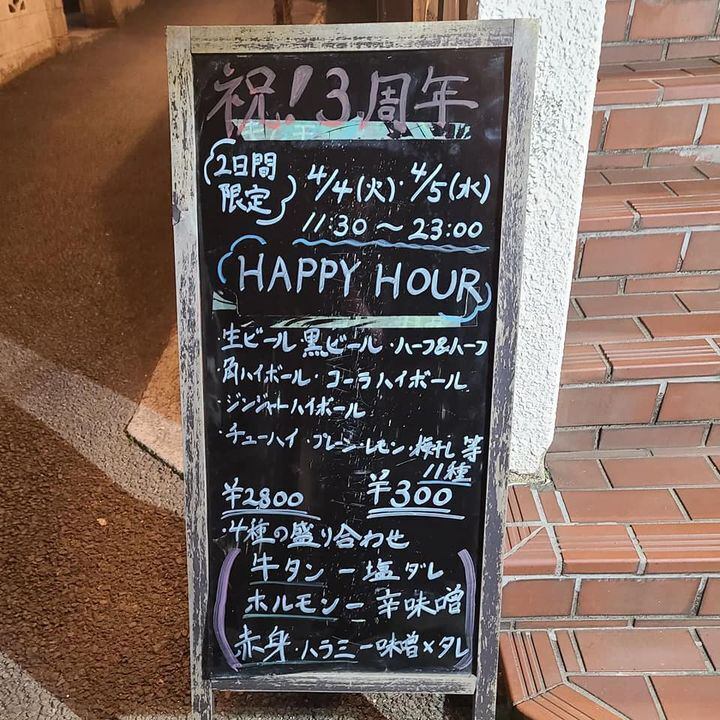 祝!3周年
2日間
限定
4/4(火)・4/5(水)
11:30〜23:00
HAPPY HOUR
・生ビール 黒ビール・ハーフ&ハーフ
・角ハイボール・コーラハイボール
・ジンジャーハイボール
・チューハイ・プレーン・レモン・梅干し 等
11種
¥2800 ¥300
・4種の盛り合わせ
牛タン ー 塩ダレ
ホルモン ー 辛味噌
赤身・ハラミ ー 味噌×タレ